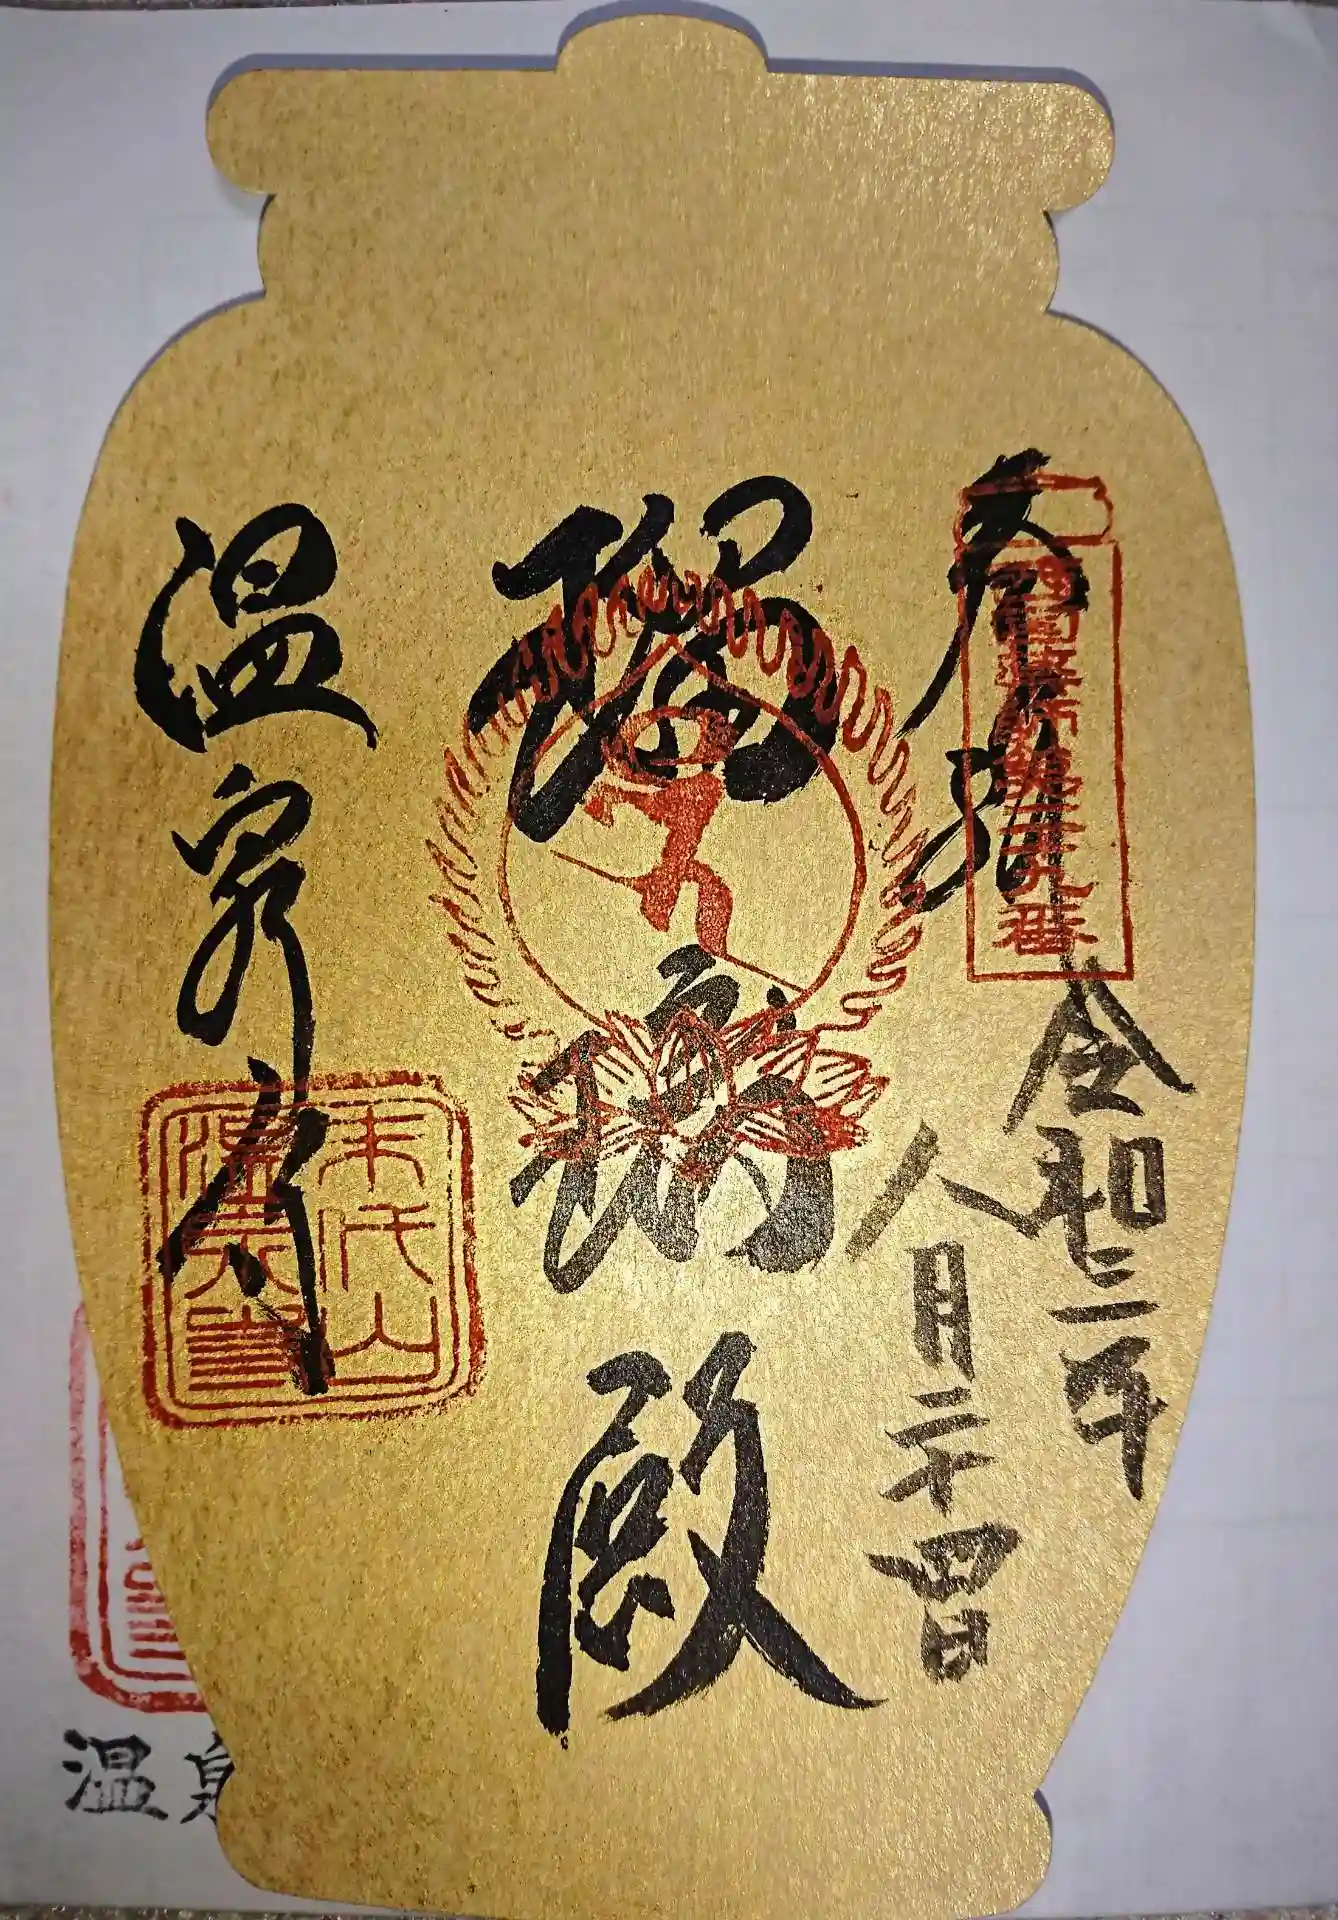 奉拝
西国薬師第二十九番
令和三年
八月二十四日
瑠璃殿
温泉寺
末代山
温泉寺
温泉